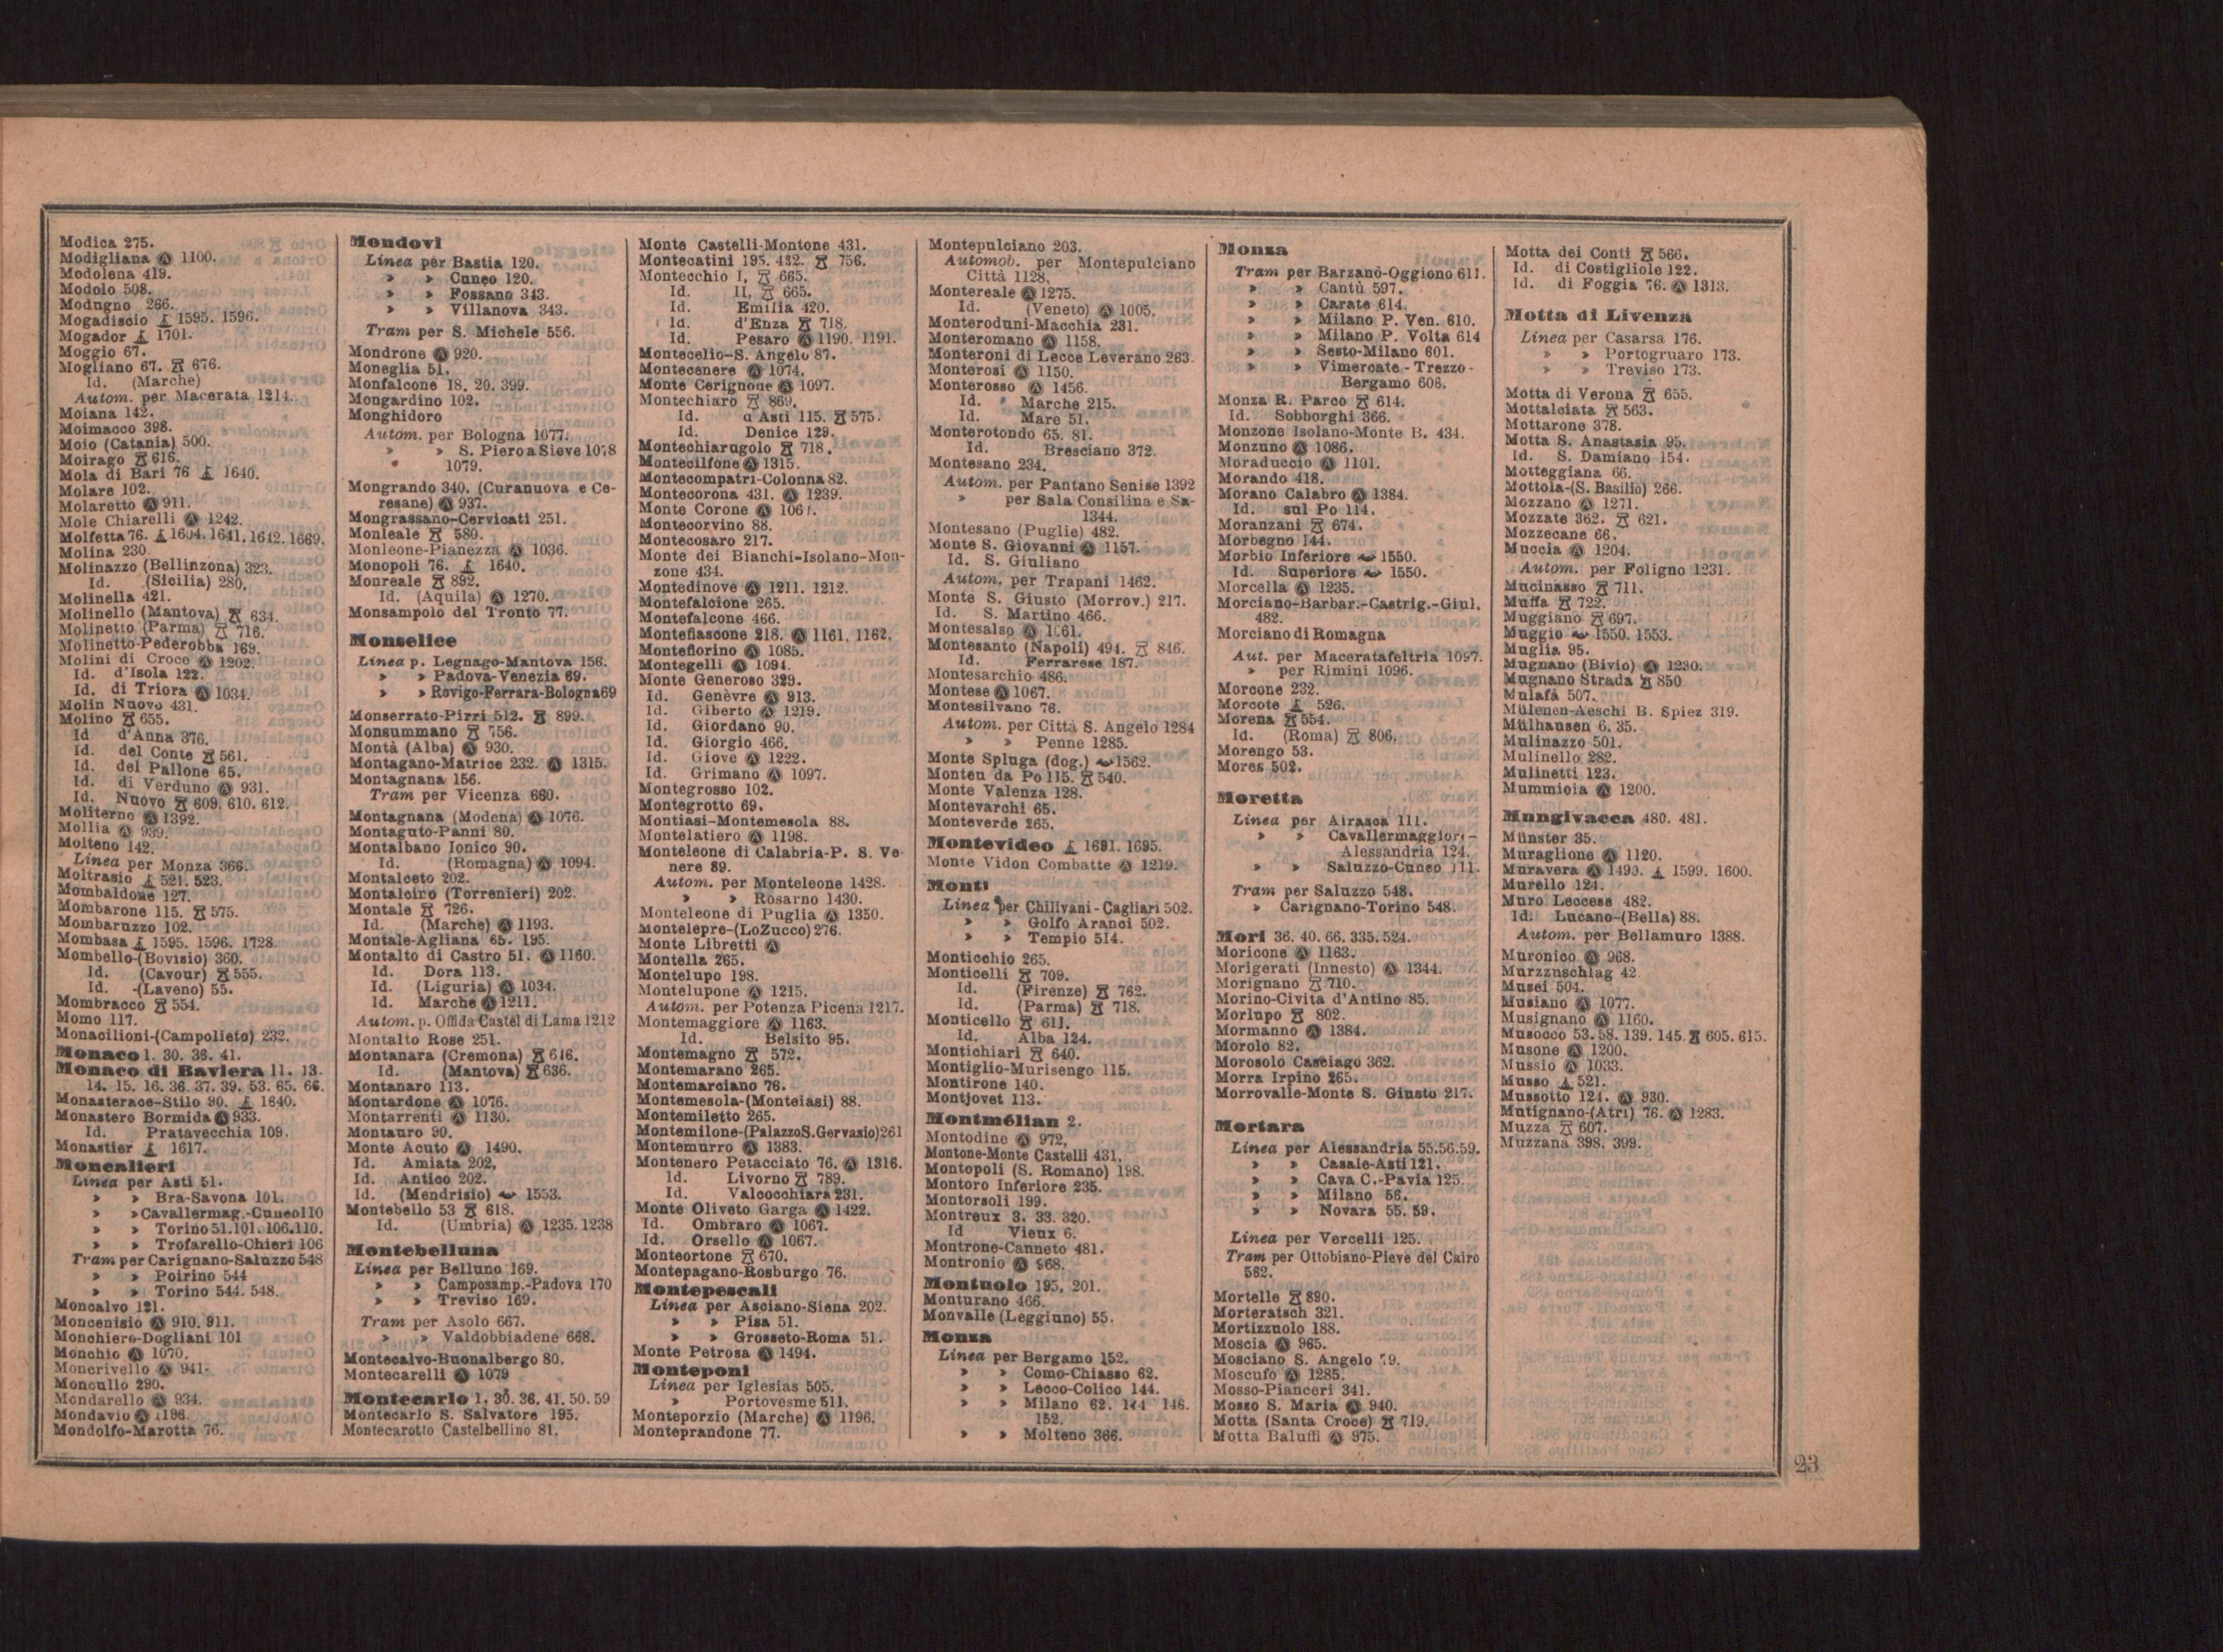 Modica 275.
Modigliana Ⓐ 1100.
Modolena 419.
Modolo 508.
Modugno 266.
Mogadiscio 1595. 1596.
Mogador 1701.
Moggio 67.
Mogliano 67. 676.
Id. (Marche)
Autom. per Macerata 1214.
Moiana 142.
Moimacco 398.
Moio (Catania) 500.
Moirago 616.
Mola di Bari 76 1640.
Molare 102.
Molaretto Ⓐ 911.
Mole Chiarelli Ⓐ 1242.
Molfetta 76. 1604. 1641. 1642. 1669.
Molina 230.
Molinazzo (Bellinzona) 323.
Id. (Sicilia) 280.
Molinella 421.
Molinello (Mantova) 634.
Molinetto (Parma) 716.
Molinetto-Pederobba 169.
Molini di Croce Ⓐ 1202.
Id. d'Isola 122.
Id. di Triora Ⓐ 1034.
Molin Nuovo 431.
Molino 655.
Id d'Anna 376.
Id. del Conte 561.
Id. del Pallone 65.
Id. di Verduno Ⓐ 931.
Id. Nuovo 609. 610. 612.
Moliterno Ⓐ 1392.
Mollia Ⓐ 939.
Molteno 142.
Linea per Monza 366.
Moltrasio 521. 523.
Mombaldone 127.
Mombarone 115. 575.
Mombaruzzo 102.
Mombasa 1595. 1596. 1728.
Mombello-(Bovisio) 360.
Id. (Cavour) 555.
Id. -(Laveno) 55.
Mombracco 554.
Momo 117.
Monacilioni-(Campolieto) 232.
Monaco 1. 30. 36. 41.
Monaco di Baviera 11. 13.
14. 15. 16. 36. 37. 39. 53. 65. 66.
Monasterace-Stilo 90. 1640.
Monastero Bormida Ⓐ 933.
Id. Pratavecchia 109.
Monastier 1617.
Moncalieri
Linea per Asti 51.
» » Bra-Savona 101.
» » Cavallermag.-Cuneo 110
» » Torino 51. 101. 106. 110.
» » Trofarello-Chieri 106
Tram per Carignano-Saluzzo 548
» » Poirino 544
» » Torino 544. 548.
Moncalvo 121.
Moncenisio Ⓐ 910. 911.
Monchiero-Dogliani 101
Monchio Ⓐ 1070.
Moncrivello Ⓐ 941.
Moncullo 290.
Mondarello Ⓐ 934.
Mondavio Ⓐ 1196.
Mondolfo-Marotta 76.
Mondovi
Linea per Bastia 120.
» » Cuneo 120.
» » Fossano 343.
» » Villanova 343.
Tram per S. Michele 556.
Mondrone Ⓐ 920.
Moneglia 51.
Monfalcone 18. 20. 399.
Mongardino 102.
Monghidoro
Autom. per Bologna 1077.
» » S. Piero a Sieve 1078
1079.
Mongrando 340. (Curanuova e Ce-
resane) Ⓐ 937.
Mongrassano-Cervicati 251.
Monleale 580.
Monleone-Pianezza Ⓐ 1036.
Monopoli 76. 1640.
Monreale 892.
Id. (Aquila) Ⓐ 1270.
Monsampolo del Tronto 77.
Monselice
Linea p. Legnago-Mantova 156.
» » Padova-Venezia 69.
» » Rovigo-Ferrara-Bologna 69
Monserrato-Pirri 512. 899.
Monsummano 756.
Montà (Alba) Ⓐ 930.
Montagano-Matrice 232. Ⓐ 1315.
Montagnana 156.
Tram per Vicenza 660.
Montagnana (Modena) Ⓐ 1076.
Montaguto-Panni 80.
Montalbano Ionico 90.
Id. (Romagna) Ⓐ 1094.
Montalceto 202.
Montalcino (Torrenieri) 202.
Montale 726.
Id. (Marche) Ⓐ 1193.
Montale-Agliana 65. 195.
Montalto di Castro 51. Ⓐ 1160.
Id. Dora 113.
Id. (Liguria) Ⓐ 1034.
Id. Marche Ⓐ 1211.
Autom. p. Offida Castel di Lama 1212
Montalto Rose 251.
Montanara (Cremona) 646.
Id. (Mantova) 636.
Montanaro 113.
Montardone Ⓐ 1076.
Montarrenti Ⓐ 1130.
Montauro 90.
Monte Acuto Ⓐ 1490.
Id. Amiata 202.
Id. Antico 202.
Id. (Mendrisio) 1553.
Montebello 53 618.
Id. (Umbria) Ⓐ 1235. 1238
Montebelluna
Linea per Belluno 169.
» » Camposamp.-Padova 170
» » Treviso 169.
Tram per Asolo 667.
» » Valdobbiadene 668.
Montecalvo-Buonalbergo 80.
Montecarelli Ⓐ 1079
Montecarlo 1. 30. 36. 41. 50. 59
Montecarlo S. Salvatore 195.
Montecarotto Castelbellino 81.
Monte Castelli-Montone 431.
Montecatini 195. 432. 756.
Montecchio I, 665.
Id. II, 665.
Id. Emilia 420.
Id. d'Enza 718.
Id. Pesaro Ⓐ 1190. 1191.
Montecelio-S. Angelo 87.
Montecenere Ⓐ 1074.
Monte Cerignone Ⓐ 1097.
Montechiaro 869.
Id. d'Asti 115. 575.
Id. Denice 129.
Montechiarugolo 718.
Montecilfone Ⓐ 1315.
Montecompatri-Colonna 82.
Montecorona 431. Ⓐ 1239.
Monte Corone Ⓐ
Montecorvino 88.
Montecosaro 217.
Monte dei Bianchi-Isolano-Mon-
zone 434.
Montedinove Ⓐ 1211. 1212.
Montefalcione 265.
Montefalcone 466.
Montefiascone 218. Ⓐ 1161. 1162.
Montefiorino Ⓐ 1085.
Montegelli Ⓐ 1094.
Monte Generoso 329.
Id. Genèvre Ⓐ 913.
Id. Giberto Ⓐ 1219.
Id. Giordano 90.
Id. Giorgio 466.
Id. Giove Ⓐ 1222.
Id. Grimano Ⓐ 1097.
Montegrosso 102.
Montegrotto 69.
Montiasi-Montemesola 88.
Montelatiero Ⓐ 1198.
Monteleone di Calabria-P. S. Ve-
nere 89.
Autom. per Monteleone 1428.
» » Rosarno 1430.
Monteleone di Puglia Ⓐ 1350.
Montelepre-(Lo Zucco) 276.
Monte Libretti Ⓐ
Montella 265.
Montelupo 198.
Montelupone Ⓐ 1215.
Autom. per Potenza Picena 1217.
Montemaggiore Ⓐ 1163.
Id. Belsito 95.
Montemagno 572.
Montemarano 265.
Montemarciano 76.
Montemesola-(Monteiasi) 88.
Montemiletto 265.
Montemilone-(Palazzo S. Gervasio) 261
Montemurro Ⓐ 1383.
Montenero Petacciato 76. Ⓐ 1316.
Id. Livorno 789.
Id. Valcocchiara 231.
Monte Oliveto Garga Ⓐ 1422.
Id. Ombraro Ⓐ 1067.
Id. Orsello Ⓐ 1067.
Monteortone 670.
Montepagano-Rosburgo 76.
Montepescali
Linea per Asciano-Siena 202.
» » Pisa 51.
» » Grosseto-Roma 51.
Monte Petrosa Ⓐ 1494.
Monteponi
Linea per Iglesias 505.
» Portovesme 511.
Monteporzio (Marche) Ⓐ 1196.
Monteprandone 77.
Montepulciano 203.
Automob. per Montepulciano
Città 1128.
Montereale Ⓐ 1275.
Id. (Veneto) Ⓐ 1005.
Monteroduni-Macchia 231.
Monteromano Ⓐ 1158.
Monteroni di Lecce Leverano 263.
Monterosi Ⓐ 1150.
Monterosso Ⓐ 1456.
Id. Marche 215.
Id. Mare 51.
Monterotondo 65. 81.
Id. Bresciano 372.
Montesano 234.
Autom. per Pantano Senise 1392
» per Sala Consilina e Sa-
1344.
Montesano (Puglie) 482.
Monte S. Giovanni Ⓐ 1157.
Id. S. Giuliano
Autom. per Trapani 1462.
Monte S. Giusto (Morrov.) 217.
Id. S. Martino 466.
Montesalso Ⓐ 1061.
Montesanto (Napoli) 494. 846.
Id. Ferrarese 187.
Montesarchio 486.
Montese Ⓐ 1067.
Montesilvano 76.
Autom. per Città S. Angelo 1284
» » Penne 1285.
Monte Spluga (dog.) 1562.
Monteu da Po 115. 540.
Monte Valenza 128.
Montevarchi 65.
Monteverde 265.
Montevideo 1691. 1695.
Monte Vidon Combatte Ⓐ 1219.
Monti
Linea per Chilivani-Cagliari 502.
» » Golfo Aranci 502.
» » Tempio 514.
Monticchio 265.
Monticelli 709.
Id. (Firenze) 762.
Id. (Parma) 718.
Monticello 611.
Id. Alba 124.
Montichiari 640.
Montiglio-Murisengo 115.
Montirone 140.
Montjovet 113.
Montmélian 2.
Montodine Ⓐ 972.
Montone-Monte Castelli 431.
Montopoli (S. Romano) 198.
Montoro Inferiore 235.
Montorsoli 199.
Montreux 3. 33. 320.
Id Vieux 6.
Montrone-Canneto 481.
Montronio Ⓐ 968.
Montuolo 195. 201.
Monturano 466.
Monvalle (Leggiuno) 55.
Monza
Linea per Bergamo 152.
» » Como-Chiasso 62.
» » Lecco-Colico 144.
» » Milano 62. 144 146.
152.
» » Molteno 366.
Monza
Tram per Barzanò-Oggiono 611.
» » Cantù 597.
» » Carate 614.
» » Milano P. Ven. 610.
» » Milano P. Volta 614
» » Sesto-Milano 601.
» » Vimercate-Trezzo-
Bergamo 608.
Monza R. Parco 614.
Id. Sobborghi 366.
Monzone Isolano-Monte B. 434.
Monzuno Ⓐ 1086.
Moraduccio Ⓐ 1101.
Morando 418.
Morano Calabro Ⓐ 1384.
Id. sul Po 114.
Moranzani 674.
Morbegno 144.
Morbio Inferiore 1550.
Id. Superiore 1550.
Morcella Ⓐ 1235.
Morciano-Barbar.-Castrig.-Giul.
482.
Morciano di Romagna
Aut. per Maceratafeltria 1097.
» per Rimini 1096.
Morcone 232.
Morcote 526.
Morena 554.
Id. (Roma) 806.
Morengo 53.
Mores 502.
Moretta
Linea per Airasca 111.
» » Cavallermaggiore-
Alessandria 124.
» » Saluzzo-Cuneo 111.
Tram per Saluzzo 548.
» Carignano-Torino 548.
Mori 36. 40. 66. 335. 524.
Moricone Ⓐ 1163.
Morigerati (Innesto) Ⓐ 1344.
Morignano 710.
Morino-Civita d'Antino 85.
Morlupo 802.
Mormanno Ⓐ 1384.
Morolo 82.
Morosolo Casciago 362.
Morra Irpino 265.
Morrovalle-Monte S. Giusto 217.
Mortara
Linea per Alessandria 55. 56. 59.
» » Casale-Asti 121.
» » Cava C.-Pavia 125.
» » Milano 56.
» » Novara 55. 59.
Linea per Vercelli 125.
Tram per Ottobiano-Pieve del Cairo
582.
Mortelle 890.
Morteratsch 321.
Mortizzuolo 188.
Moscia Ⓐ 965.
Mosciano S. Angelo 79.
Moscufo Ⓐ 1285.
Mosso-Pianceri 341.
Mosso S. Maria Ⓐ 940.
Motta (Santa Croce) 719.
Motta Baluffi Ⓐ 975.
Motta dei Conti 566.
Id. di Costigliole 122.
Id. di Foggia 76. Ⓐ 1313.
Motta di Livenza
Linea per Casarsa 176.
» » Portogruaro 173.
» » Treviso 173.
Motta di Verona 655.
Mottalciata 563.
Mottarone 378.
Motta S. Anastasia 95.
Id. S. Damiano 154.
Motteggiana 66.
Mottola-(S. Basilio) 266.
Mozzano Ⓐ 1271.
Mozzate 362. 621.
Mozzecane 66.
Muccia Ⓐ 1204.
Autom. per Foligno 1231.
Mucinasso 711.
Muffa 722.
Muggiano 697.
Muggio 1550. 1553.
Muglia 95.
Mugnano (Bivio) Ⓐ 1230.
Mugnano Strada 850
Mulafà 507.
Mülenen-Aeschi B. Spiez 319.
Mülhausen 6. 35.
Mulinazzo 501.
Mulinello 282.
Mulinetti 123.
Mummioia Ⓐ 1200.
Mungivacca 480. 481.
Münster 35.
Muraglione Ⓐ 1120.
Muravera Ⓐ 1490. 1599. 1600.
Murello 124.
Muro Leccese 482.
Id. Lucano-(Bella) 88.
Autom. per Bellamuro 1388.
Muronico Ⓐ 968.
Murzznschlag 42.
Musei 504.
Musiano Ⓐ 1077.
Musignano Ⓐ 1160.
Musocco 53. 58. 139. 145. 605. 615.
Musone Ⓐ 1200.
Mussio Ⓐ 1033.
Musso 521.
Mussotto 124. Ⓐ 930.
Mutignano-(Atri) 76. Ⓐ 1283.
Muzza 607.
Muzzana 398. 399.
23